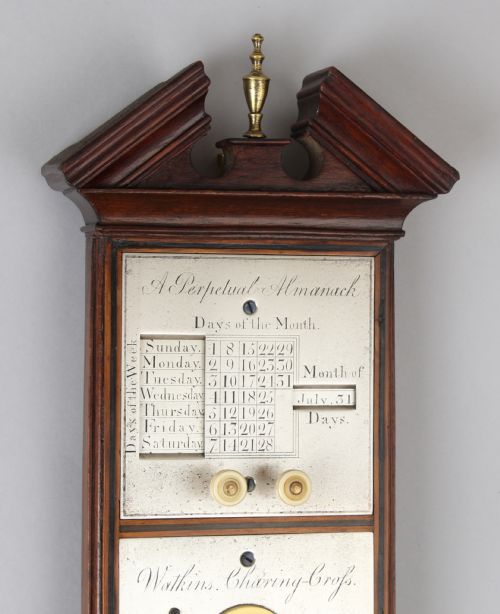 A Perpetual Almanack
Days of the Month.
Days of the Week
Sunday. 1 8 15 22 29
Monday. 2 9 16 23 30
Tuesday. 3 10 17 24 31
Wednesday 4 11 18 25
Thursday 5 12 19 26
Friday. 6 13 20 27
Saturday 7 14 21 28
Month of
July. 31
Days.
Watkins. Charing-Croſs.